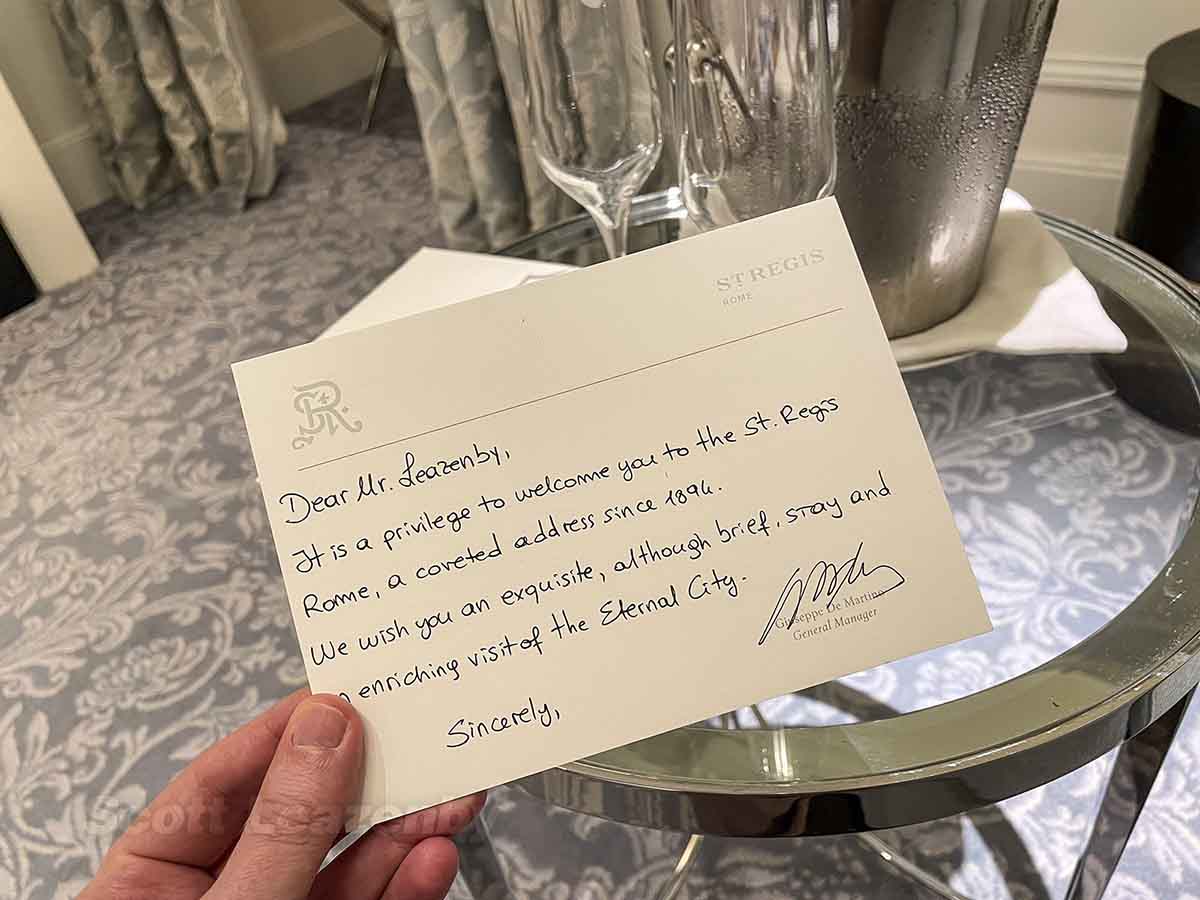 ST. REGIS
ROME
R
Dear Mr. Leazenby,
It is a privilege to welcome you to the St. Regis
Rome, a coveted address since 1894.
We wish you an exquisite, although brief, stay and
enriching visit of the Eternal City.
Sincerely,
Giuseppe De Martino
General Manager
Scott Leazenby